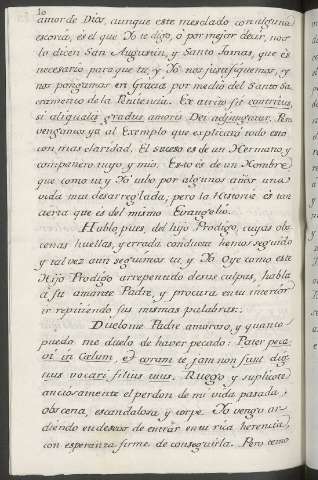 10
amor de Dios, aunque este mesclado con alguna
escoria, es el que Yo te digo, ó por mejor decir, nos
lo dicen San Augustin, y Santo Tomas, que es
necesario para que tu, y Yo nos justifiquemos, y
nos pongamos en Gracia por medio del Santo Sa-
cramento de la Penitencia. Ex atrito fit contritus,
si aliqualis gradus amoris Dei adjungatur. Pero
vengamos ya al Exemplo que explicará todo esto
con mas claridad. El suceso es de un Hermano, y
compañero tuyo, y mio. Esto es de un Hombre,
que como tu y Yo ubo por algunos años una
vida mui desarreglada, pero la Historia es tan
cierta que es del mismo Evangelio.
Habla pues, del hijo Prodigo, cuyas obs-
cenas huellas, y errada conducta hemos seguido
y tal vez aun seguimos tu, y Yo. Oye como este
Hijo Prodigo arrepentido de sus culpas, habla
á su amante Padre, y procura en tu interior
ir repitiendo sus mismas palabras:
Duelome Padre amoroso, y quanto
puedo me duelo de haver pecado: Pater peca-
vi in Cœlum, et coram te, jam non sum dig-
nus vocari filius tuus. Ruego, y suplicote
anciosamente el perdon de mi vida pasada,
obscena, escandalosa, y torpe. Yo vengo ar-
diendo en deseos de entrar en tu rica herencia,
con esperanza firme de conseguirla. Pero temo